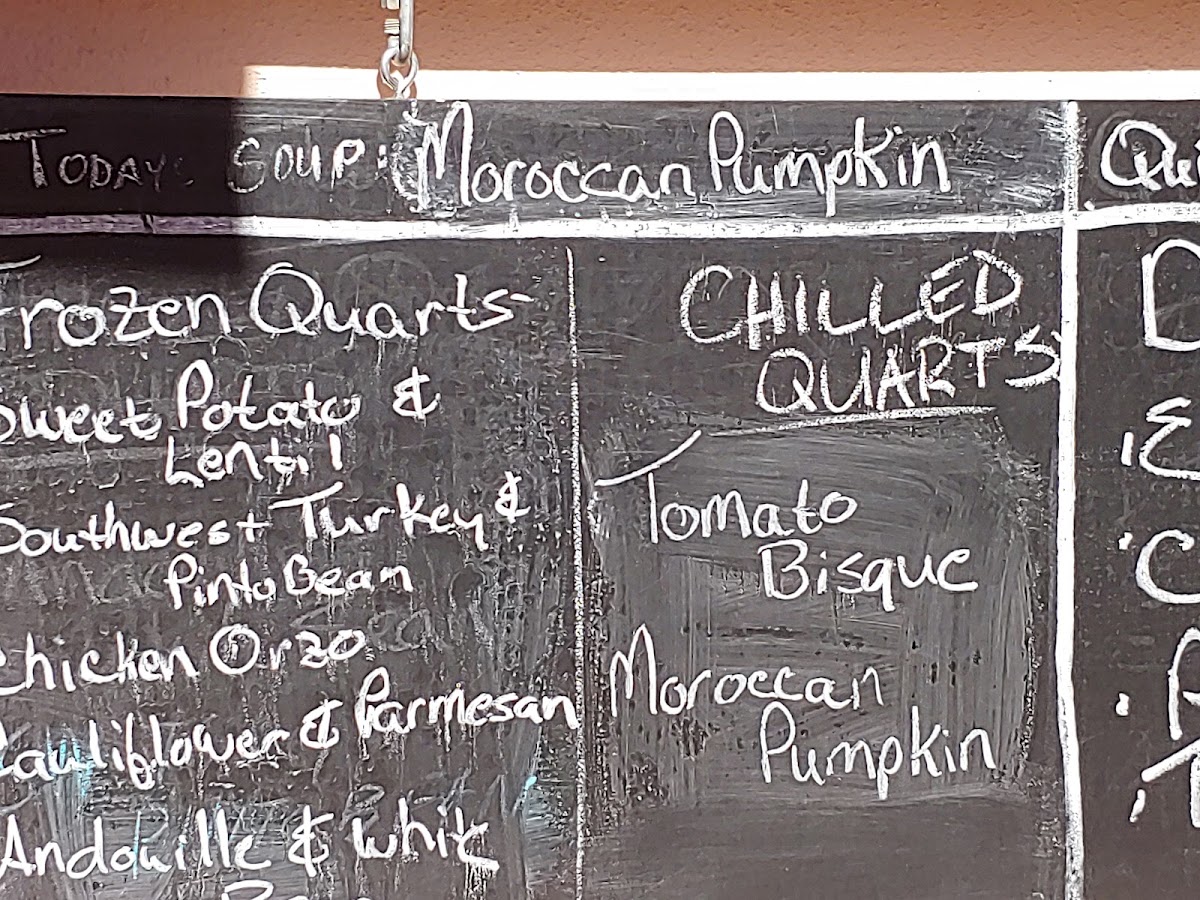 Today's Soup: Moroccan Pumpkin
Frozen Quarts-
Sweet Potato &
Lentil
Southwest Turkey &
Pinto Bean
Chicken Orzo
Cauliflower & Parmesan
Andouille & Whit
CHILLED
QUARTS
Tomato
Bisque
Moroccan
Pumpkin
Qui